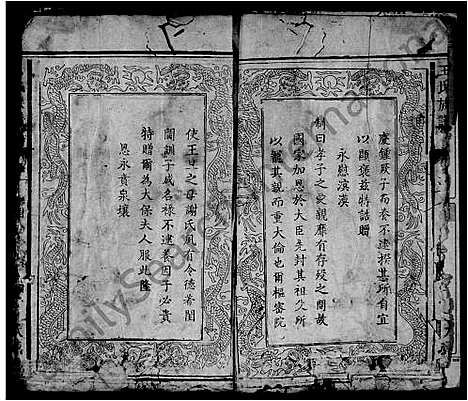 慶鍾厥子而養不逮揆其所自宜
以顯褒茲特誥贈
永慰溟漠
制曰孝子之愛親靡有存歿之間故
國家加恩於大臣先封其祖父所
以親其親而重大倫也爾樞密院
使王 之母謝氏夙有令德善閨
闈訓子成名祿不逮養因子必貴
特贈爾為大保夫人服此隆
恩永賁泉壤
王氏族譜